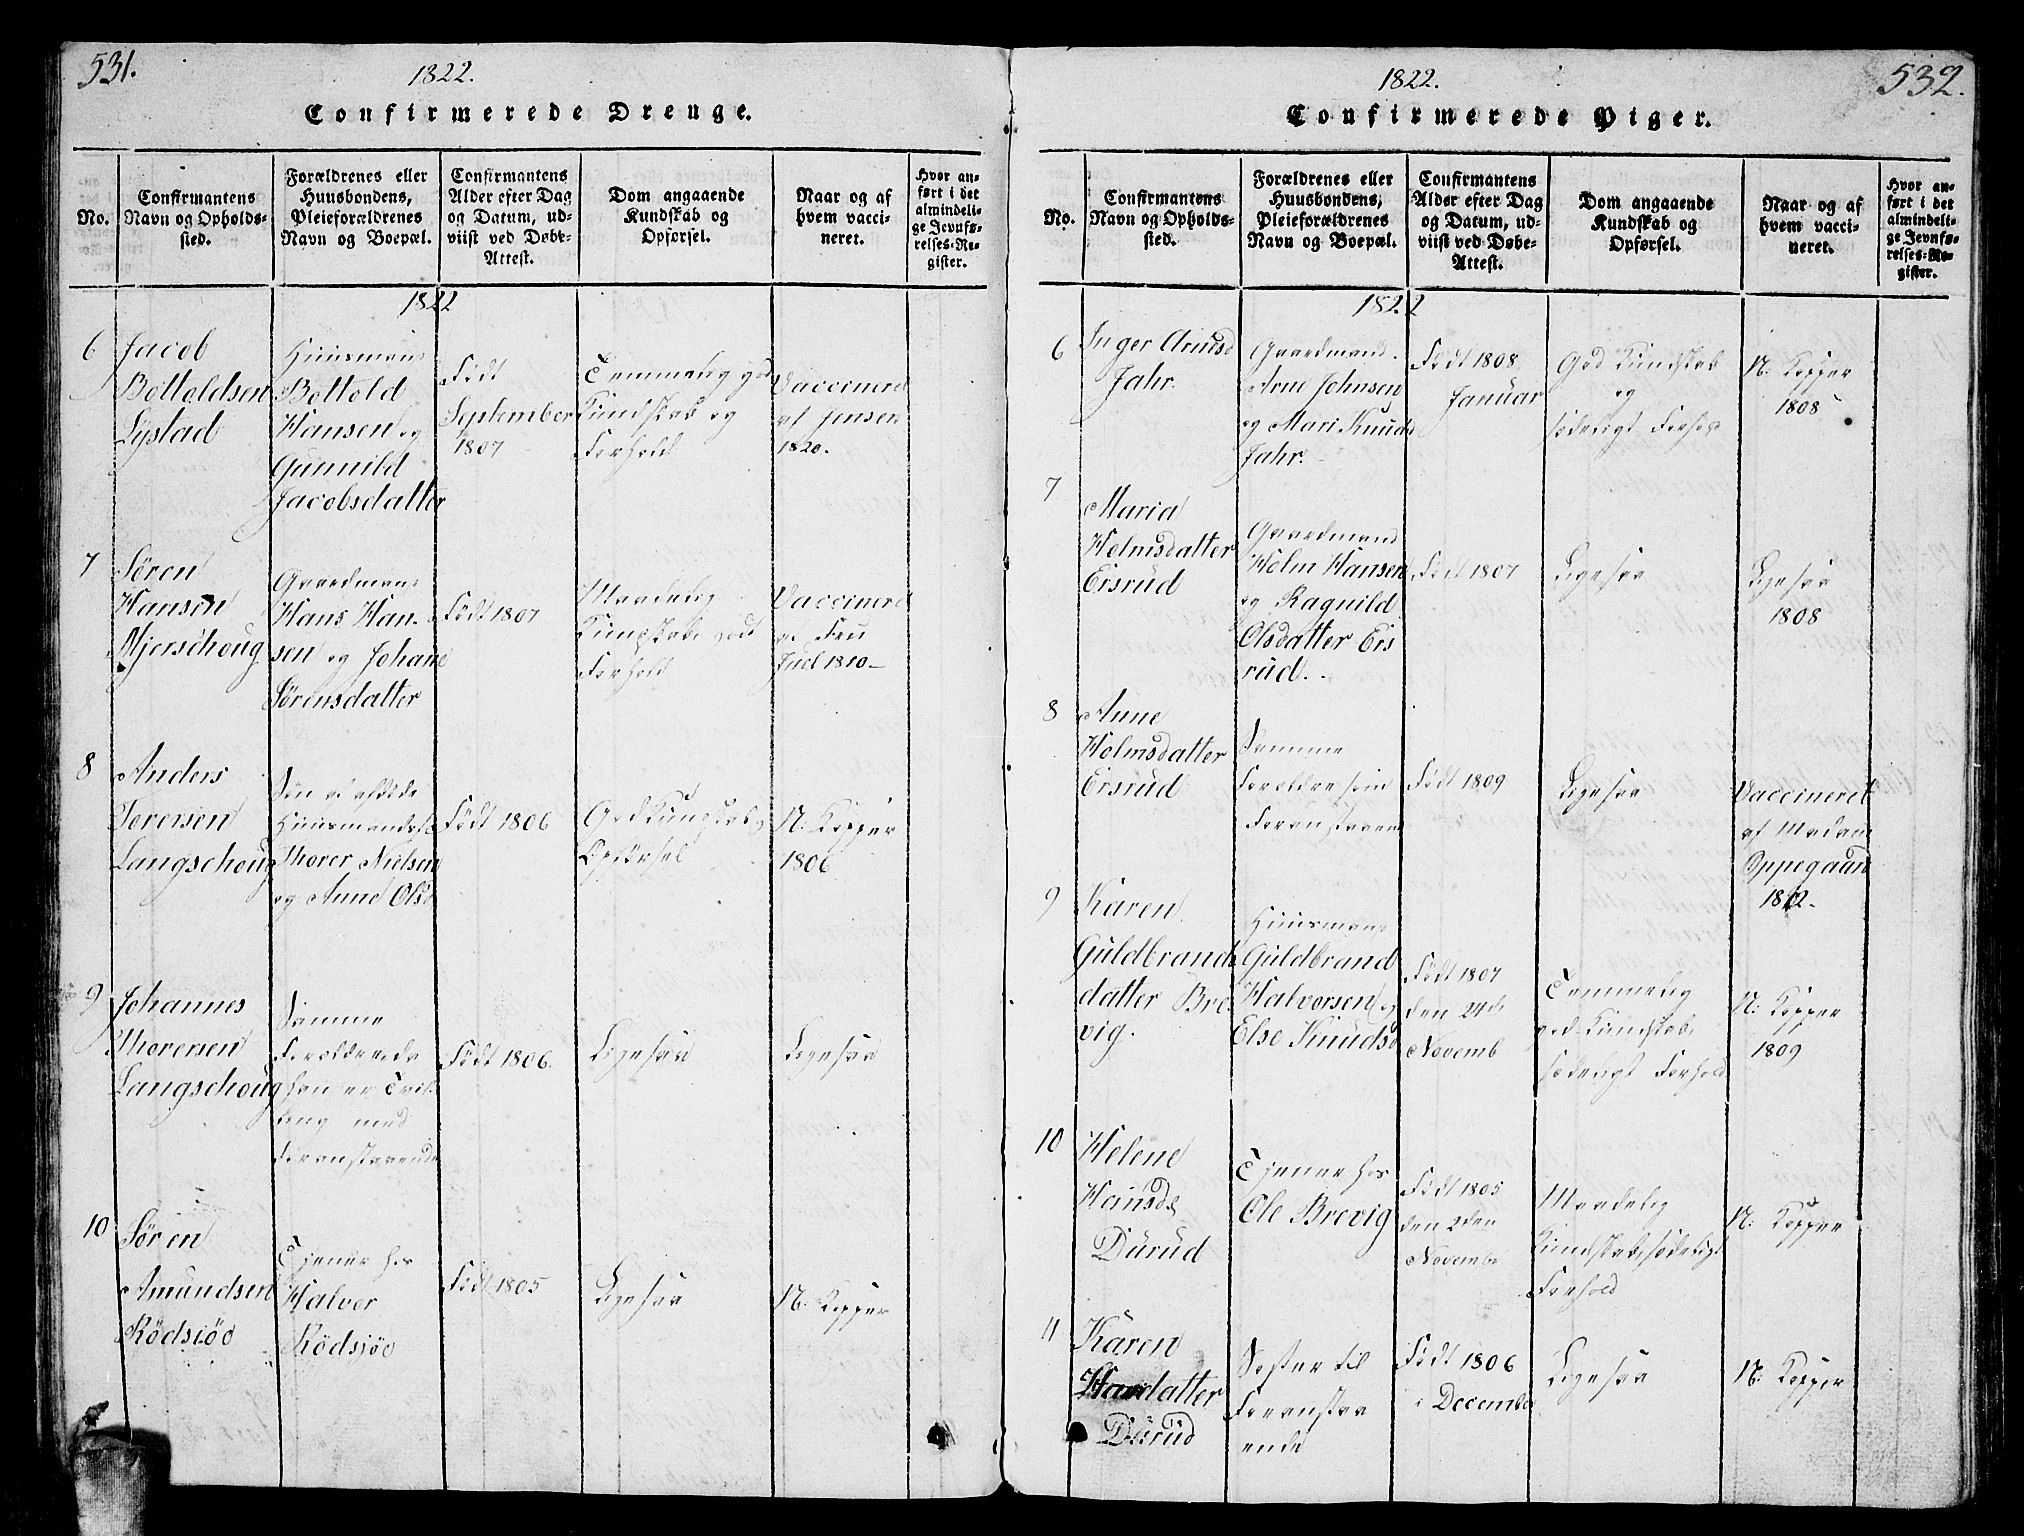 531.
1822.
Confirmerede Drenge.
No.
Confirmantens
Navn og Opholds-
sted.
Forældrenes eller
Huusbondens,
Pleieforældrenes
Navn og Boepæl.
Confirmantens
Alder efter Dag
og Datum, ud-
viist ved Døbe-
Attest.
Dom angaaende
Kundskab og
Opførsel.
Naar og af
hvem vacci-
neret.
Hvor an-
ført i det
almindeli-
ge Jevnfø-
relses-Re-
gister.
1822
6
Jacob
Bottoldsen
Lystad
Huusmand
Bottold
Hansen og
Gunnild
Jacobsdatter
Født
September
1807
Temmelig god
Kundskab og
Forhold
Vaccineret
af Jensen
1820.
7
Søren
Hansen
Mjerschoug
Gaardmand
Hans Han-
sen og Johane
Sørensdatter
Født 1807
Maadelig
Kundskab, godt
Forhold
Vaccineret
af Fru
Juel 1810
8
Anders
Torersen
Langschoug
Søn af afdøde
Huusmand
Thorer Nielsen
og Anne Olsd
Født 1806
God Kundskab og
Opførsel
N. Kopper
1806
9
Johannes
Thorersen
Langschoug
Samme
Forældre da
han er Tvil-
ling med
Foranstaaende
Født 1806.
Ligesaa
Ligesaa
10
Søren
Amundsen
Rödsiöe
Tjener hos
Halver
Rödsiöe
Født 1805
Ligesaa
N. Kopper
532.
1822.
Confirmerede Piger.
No.
Confirmantens
Navn og Opholds-
sted.
Forældrenes eller
Huusbondens,
Pleieforældrenes
Navn og Boepæl.
Confirmantens
Alder efter Dag
og Datum, ud-
viist ved Døbe-
Attest.
Dom angaaende
Kundskab og
Opførsel.
Naar og af
hvem vacci-
neret.
Hvor an-
ført i det
almindeli-
ge Jevnfø-
relses-Re-
gister.
1822
6
Inger Arnesd
Jahr.
Gaardmand
Arne Johnsen
og Mari Knuds
Jahr.
Født 1808
Januar
God Kundskab
og
sædeligt Forhold
N. Kopper
1808
7
Maria
Holmsdatter
Eisrud
Gaardmand
Holm Hansen
og Ragnild
Olsdatter Eis
rud.
Født 1807
Ligesaa
Ligesaa
1808
8
Anne
Holmsdatter
Eisrud
Samme
Forældre som
Foranstaaende
Født 1809
Ligesaa
Vaccineret
af Madam
Oppegaard
1812.
9
Karen
Guldbrands
datter Bre
vig.
Huusmand
Guldbrand
Halvorsen og
Else Knudsd
Født 1807
den 24de
Novemb
Temmelig
god Kundskab,
sædeligt Forhold
N. Kopper
1809
10
Helene
Hansd
Durud
Tjener hos
Ole Brevig
Født 1805
den 2den
Novemb
Maadelig
Kundskab, sædeligt
Forhold
N. Kopper
11
Karen
Handatter
Durud
Søster til
Foranstaa
ende
Født 1806
i December
Ligesaa
N. Kopper